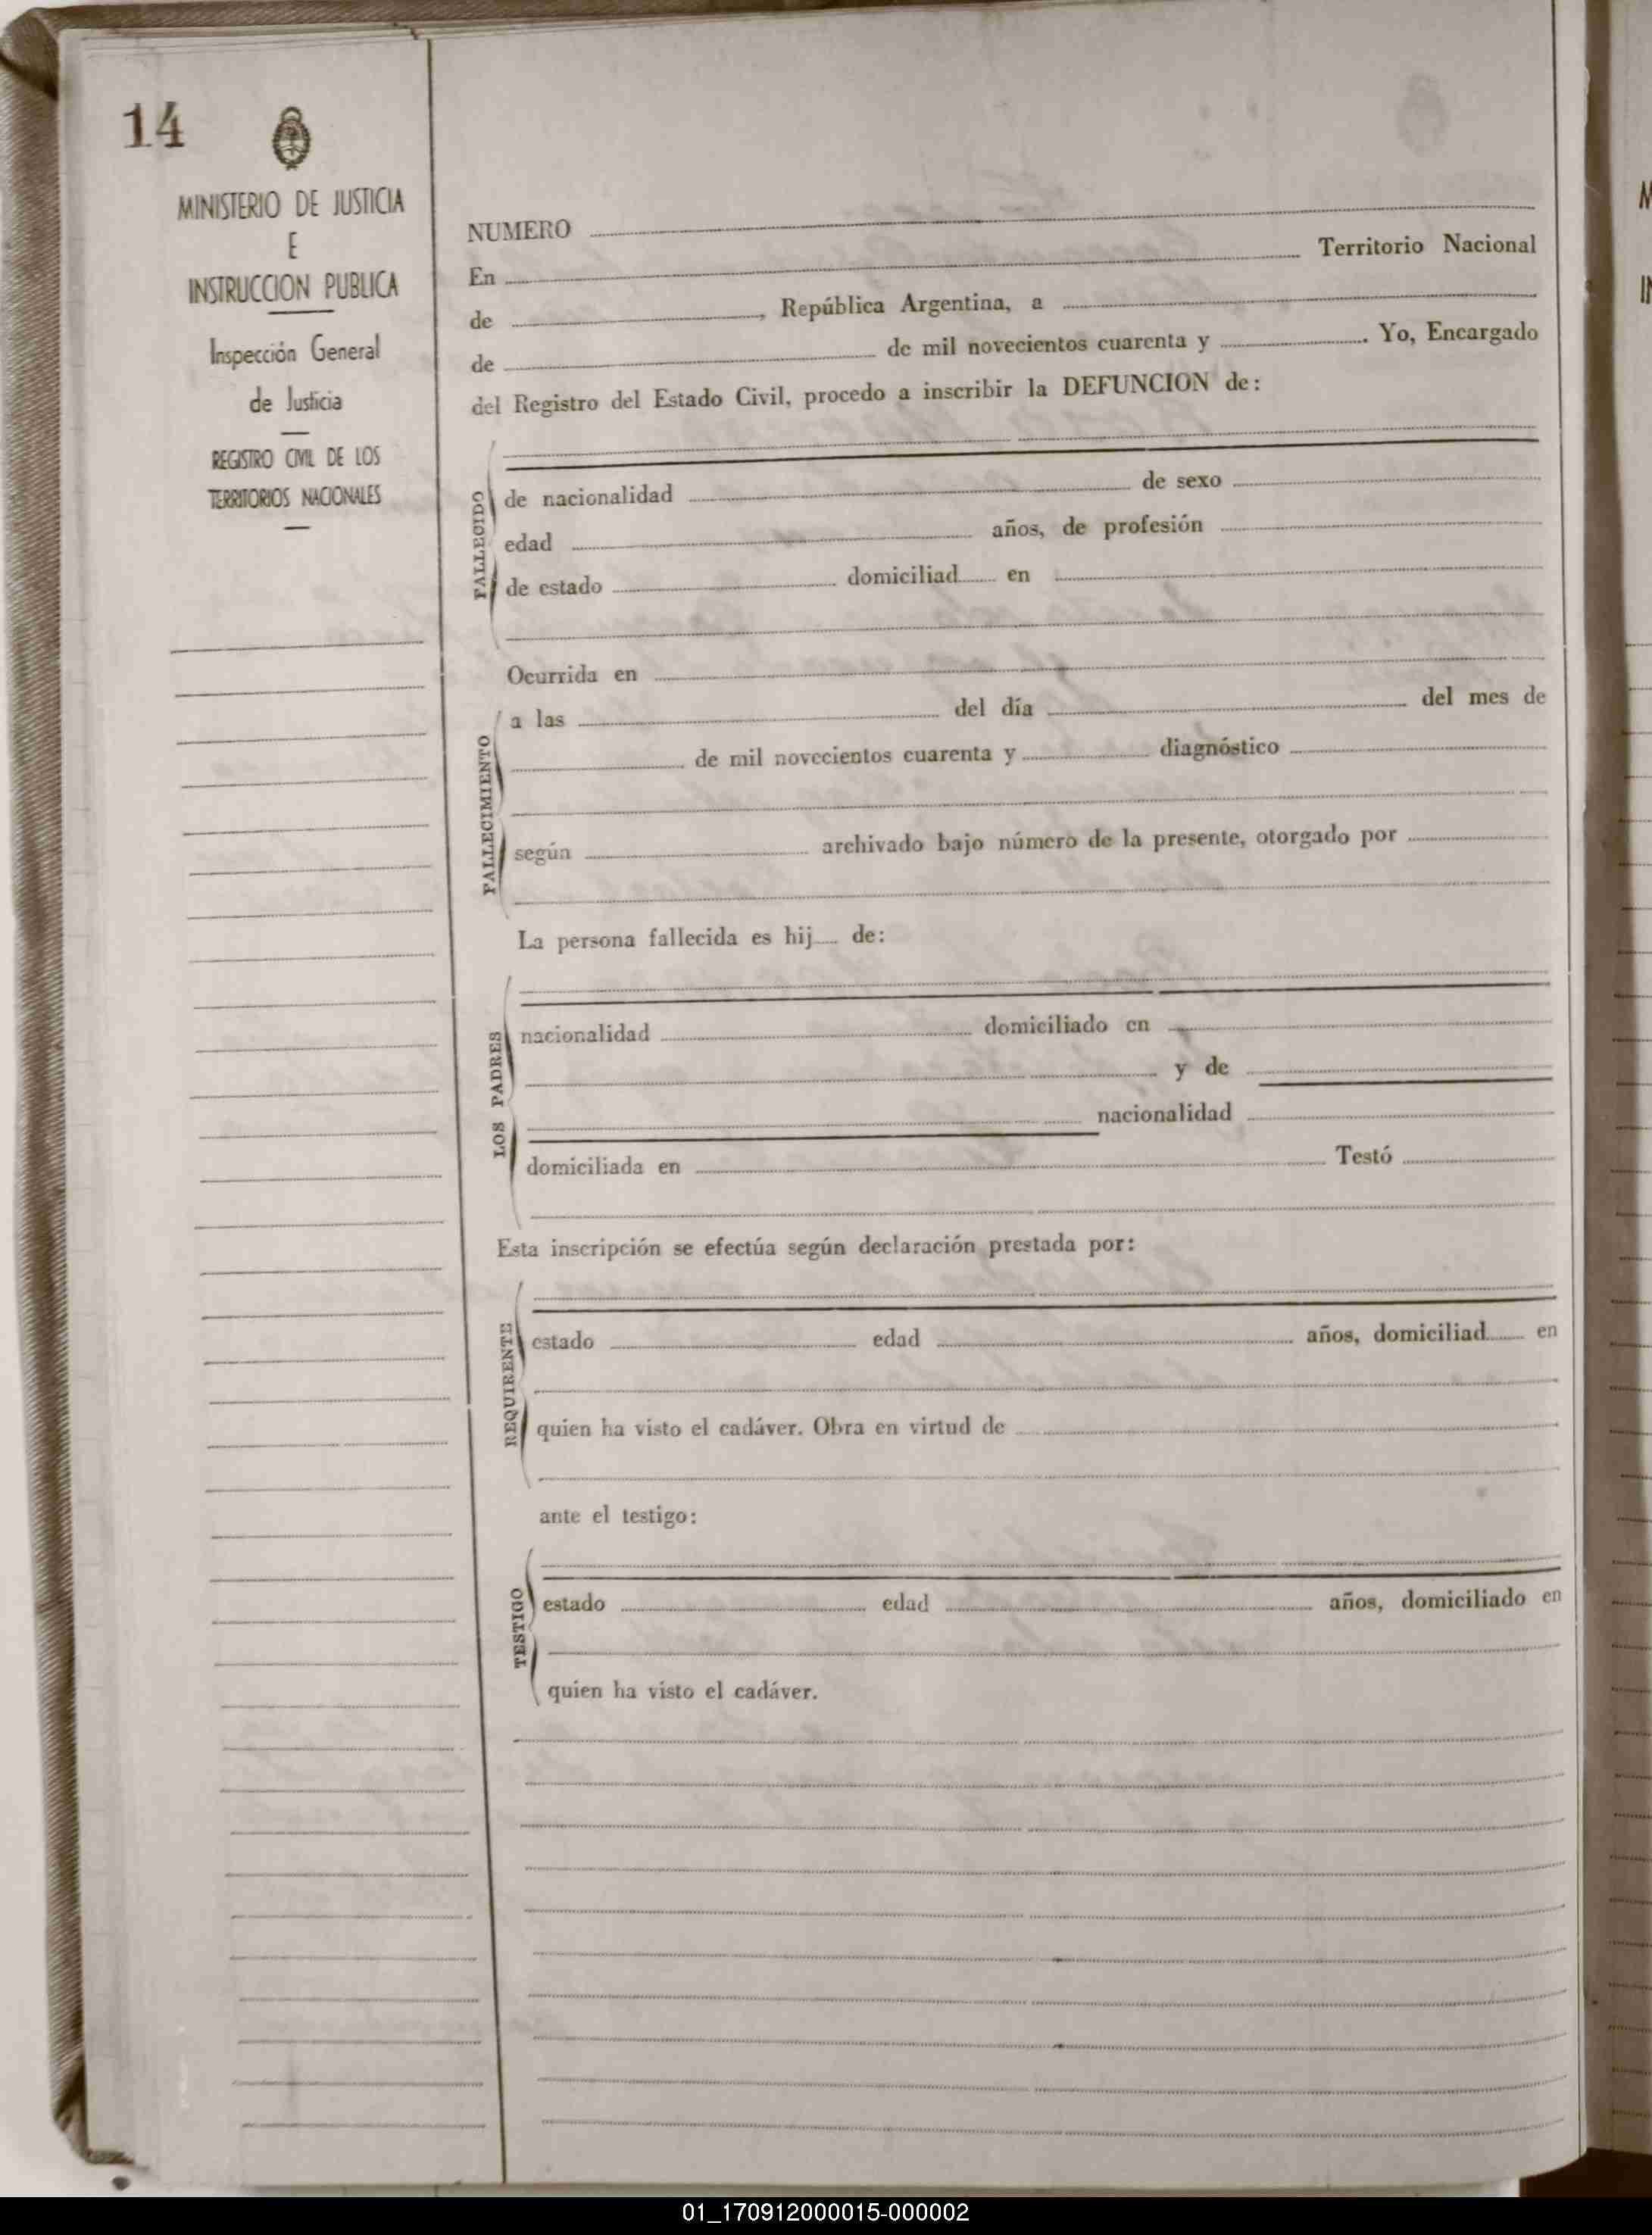 14
MINISTERIO DE JUSTICIA
E
INSTRUCCION PUBLICA
Inspección General
de Justicia
REGISTRO CIVIL DE LOS
TERRITORIOS NACIONALES
NUMERO
En Territorio Nacional
de , República Argentina, a
de de mil novecientos cuarenta y . Yo, Encargado
del Registro del Estado Civil, procedo a inscribir la DEFUNCION de:
FALLECIDO
de nacionalidad de sexo
edad años, de profesión
de estado domiciliad en
Ocurrida en
FALLECIMIENTO
a las del día del mes de
de mil novecientos cuarenta y diagnóstico
según archivado bajo número de la presente, otorgado por
La persona fallecida es hij de:
LOS PADRES
nacionalidad domiciliado en
y de
nacionalidad
domiciliada en Testó
Esta inscripción se efectúa según declaración prestada por:
REQUIRENTE
estado edad años, domiciliad en
quien ha visto el cadáver. Obra en virtud de
ante el testigo:
TESTIGO
estado edad años, domiciliado en
quien ha visto el cadáver.
01_170912000015-000002